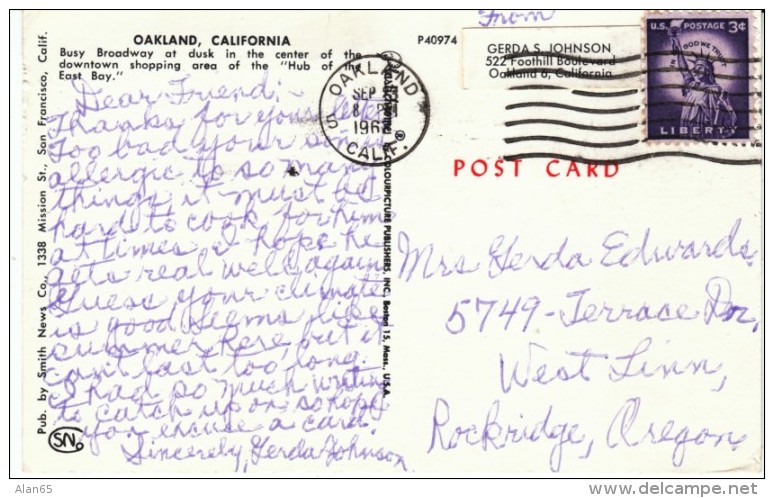 OAKLAND, CALIFORNIA
Busy Broadway at dusk in the center of the
downtown shopping area of the "Hub of the
East Bay."
P40974
From
GERDA S. JOHNSON
522 Foothill Boulevard
Oakland 6, California
U.S. POSTAGE 3¢
IN GOD WE TRUST
LIBERTY
OAKLAND
SEP
8 PM
196
CALIF.
POST CARD
Dear Friend:-
Thanks for your letter
Too bad your son is
allergic to so many
things, it must be
hard to cook for him
at times. I hope he
gets real well again
Guess your climate
is good. Seems like
summer here, but it
can't last too long.
I had so much writing
to catch up on so hope
you excuse a card.
Sincerely, Gerda Johnson
Mrs Gerda Edwards
5749-Terrace Dr,
West Linn,
Rockridge, Oregon,
Pub. by Smith News Co., 1338 Mission St., San Francisco, Calif.
SN
COLOURPICTURE PUBLISHERS, INC. Boston 15, Mass., U.S.A.
Alan65
www.delcampe.net